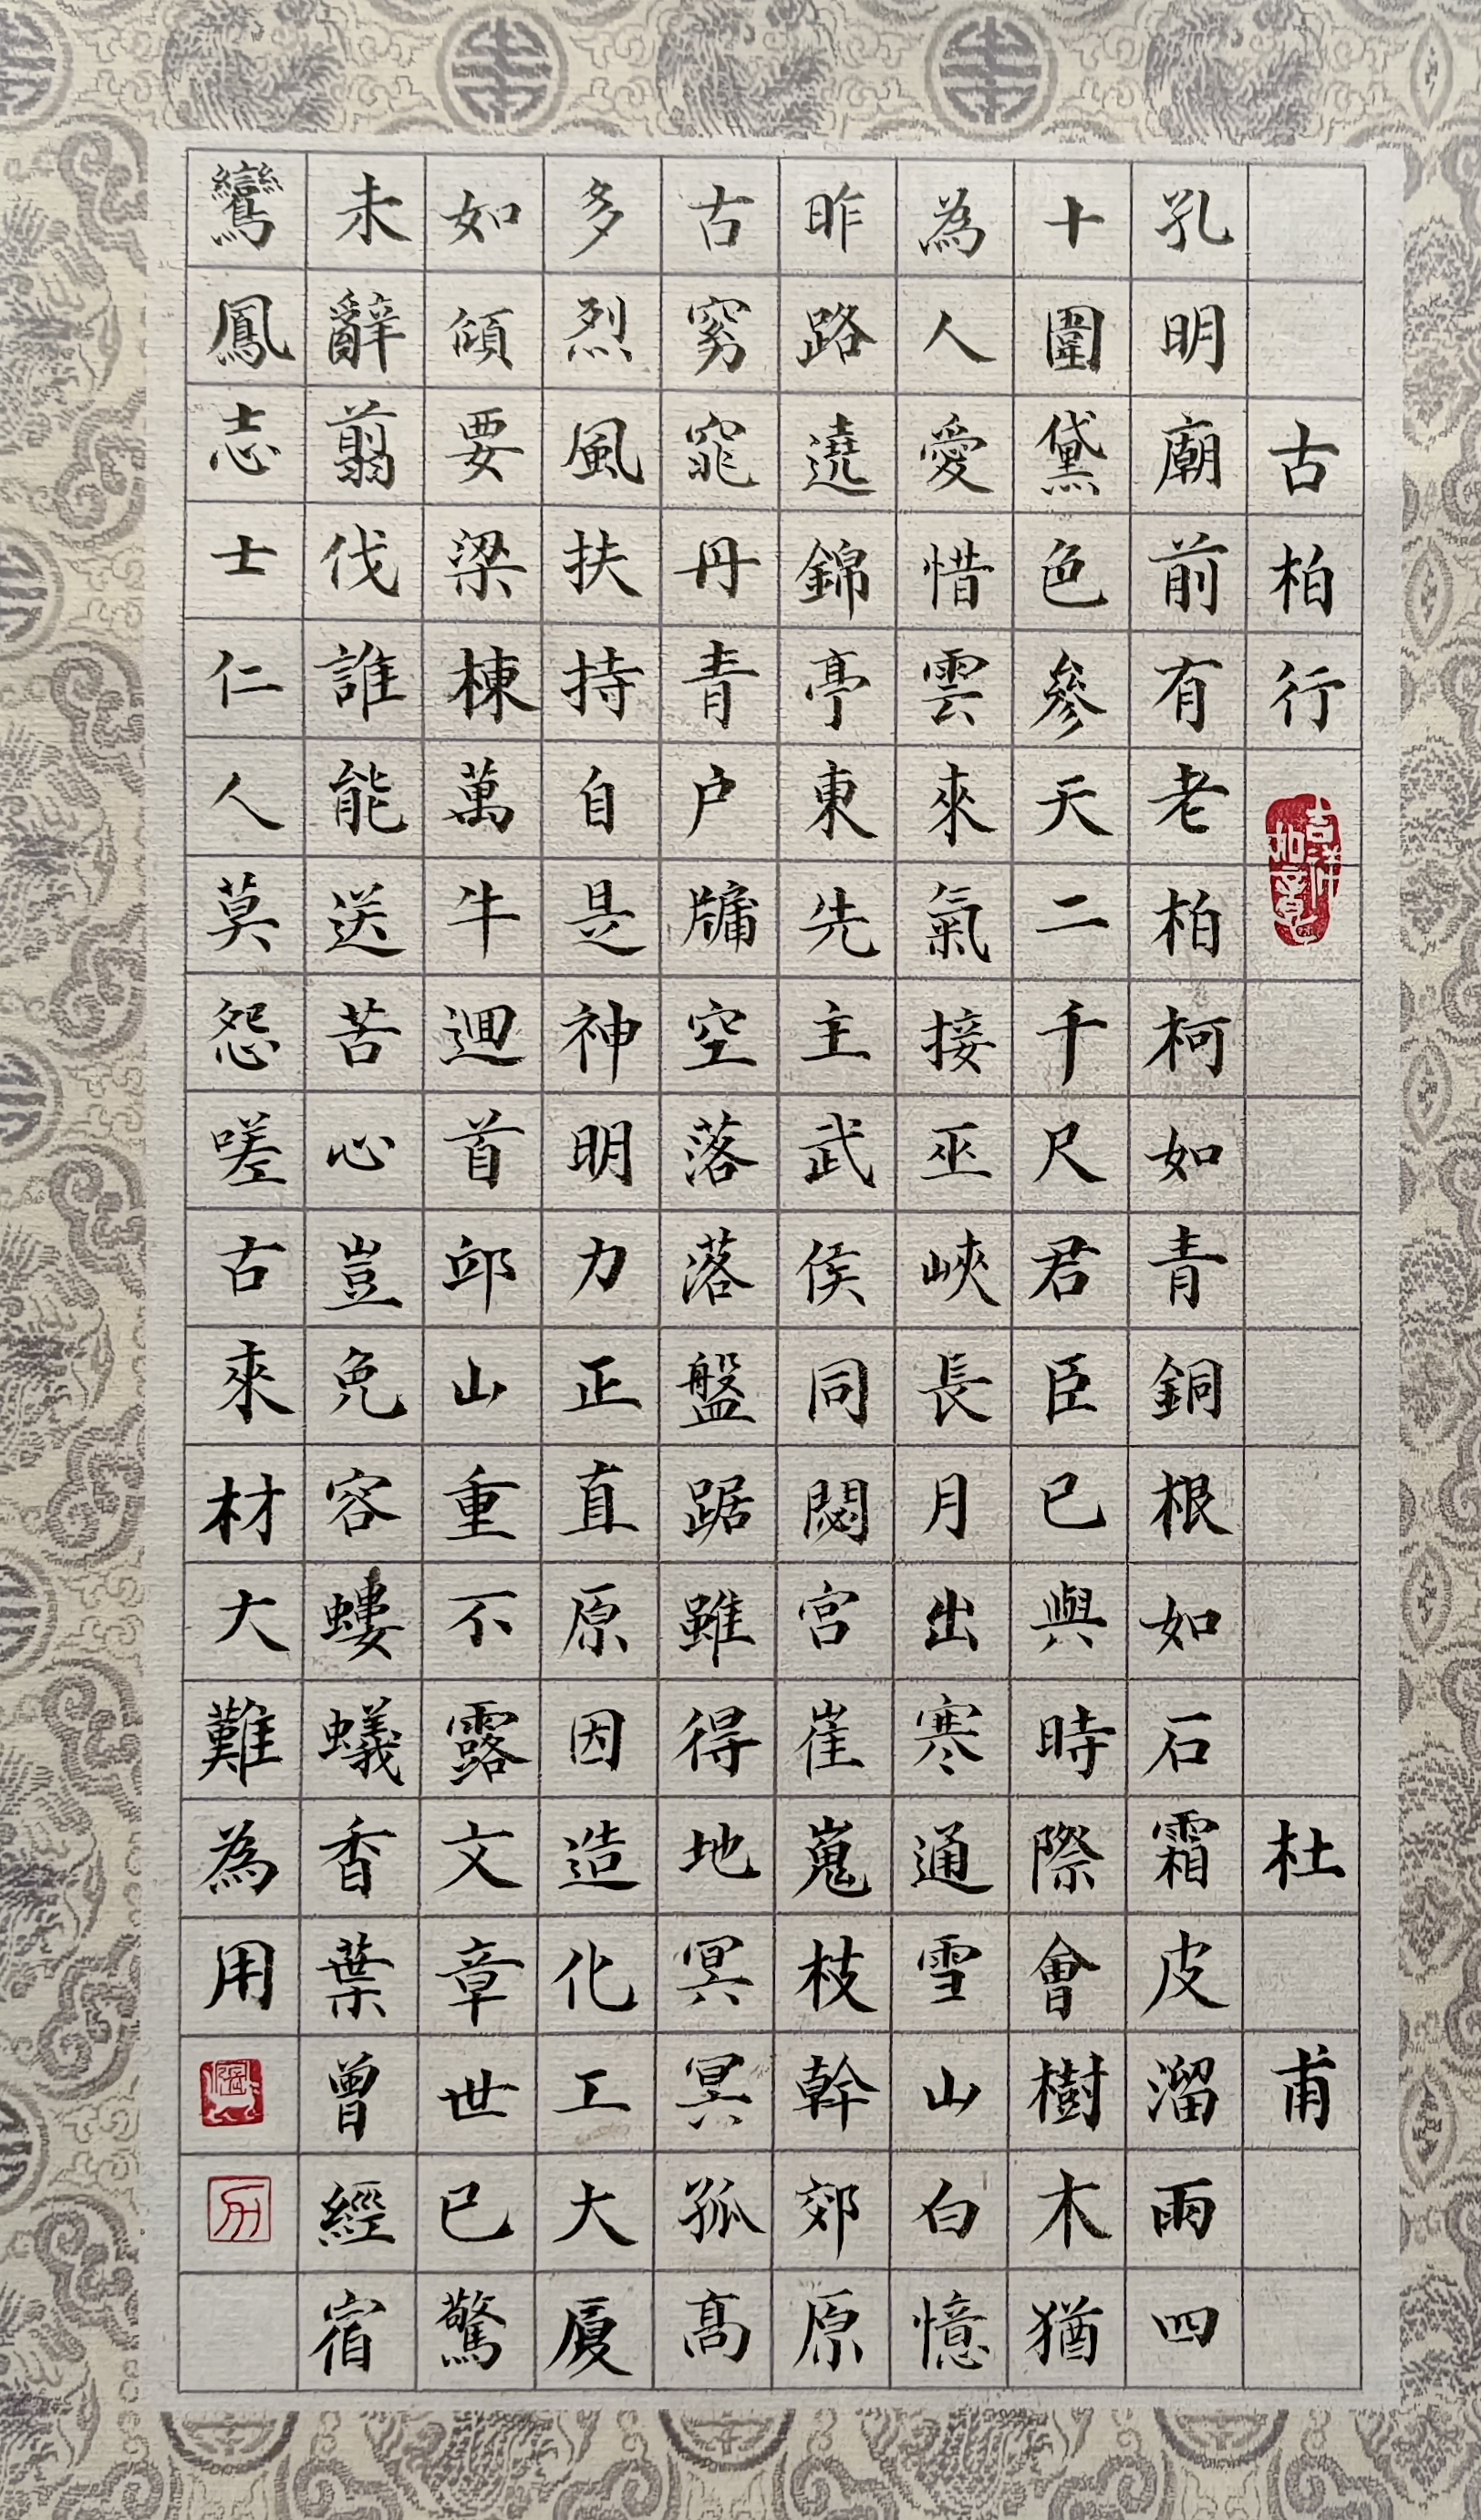 古柏行 吉祥如意 杜甫
孔明廟前有老柏柯如青銅根如石霜皮溜雨四
十圍黛色參天二千尺君臣已與時際會樹木猶
為人愛惜雲來氣接巫峽長月出寒通雪山白憶
昨路遶錦亭東先主武侯同閟宮崔嵬枝幹郊原
古窈窕丹青戶牖空落落盤踞雖得地冥冥孤高
多烈風扶持自是神明力正直原因造化工大廈
如傾要梁棟萬牛迴首邱山重不露文章世已驚
未辭翦伐誰能送苦心豈免容螻蟻香葉曾經宿
鸞鳳志士仁人莫怨嗟古來材大難為用